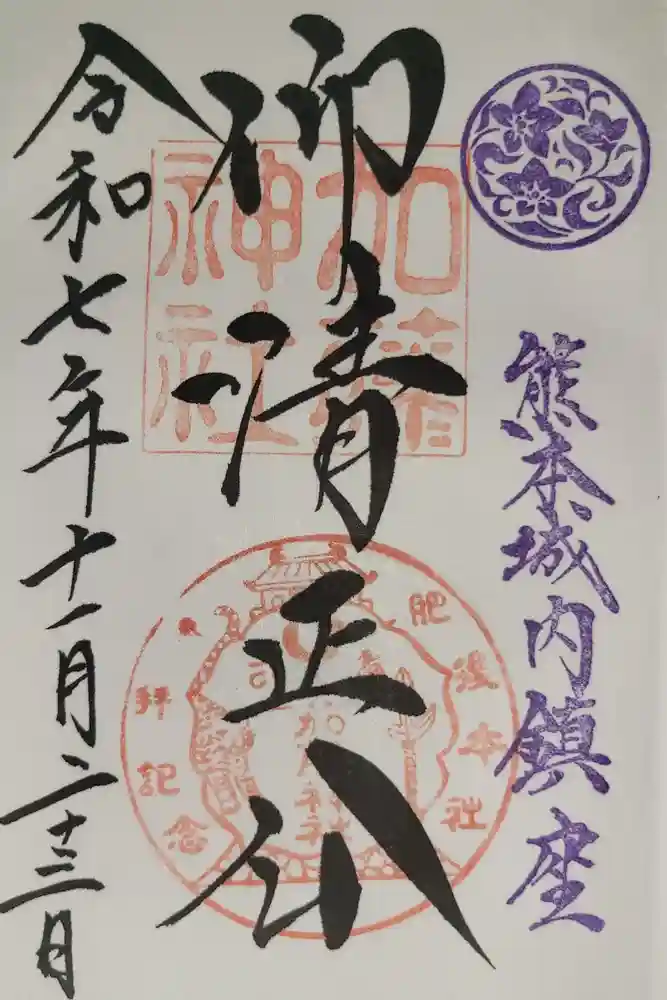 熊本城内鎮座
仰清正公
加藤神社
肥後本社
拝記念
加藤神社
令和七年十一月二十三日